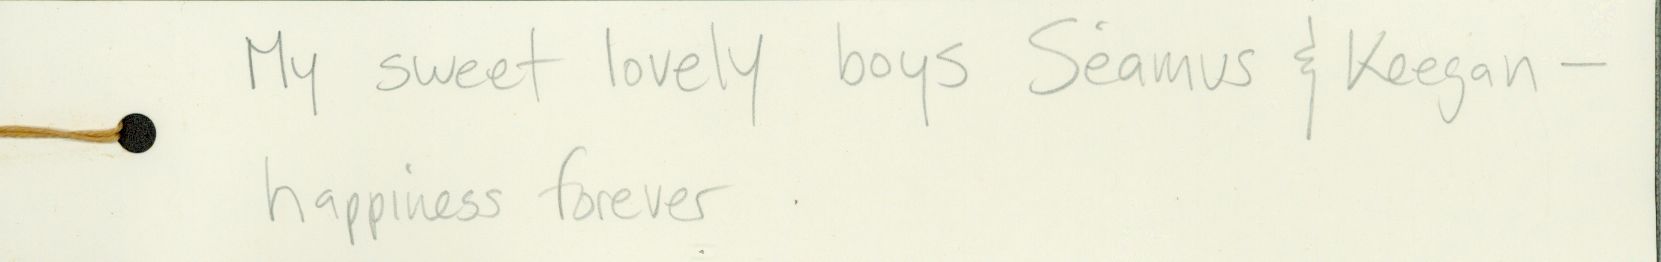 My sweet lovely boys Séamus & Keegan —
happiness forever